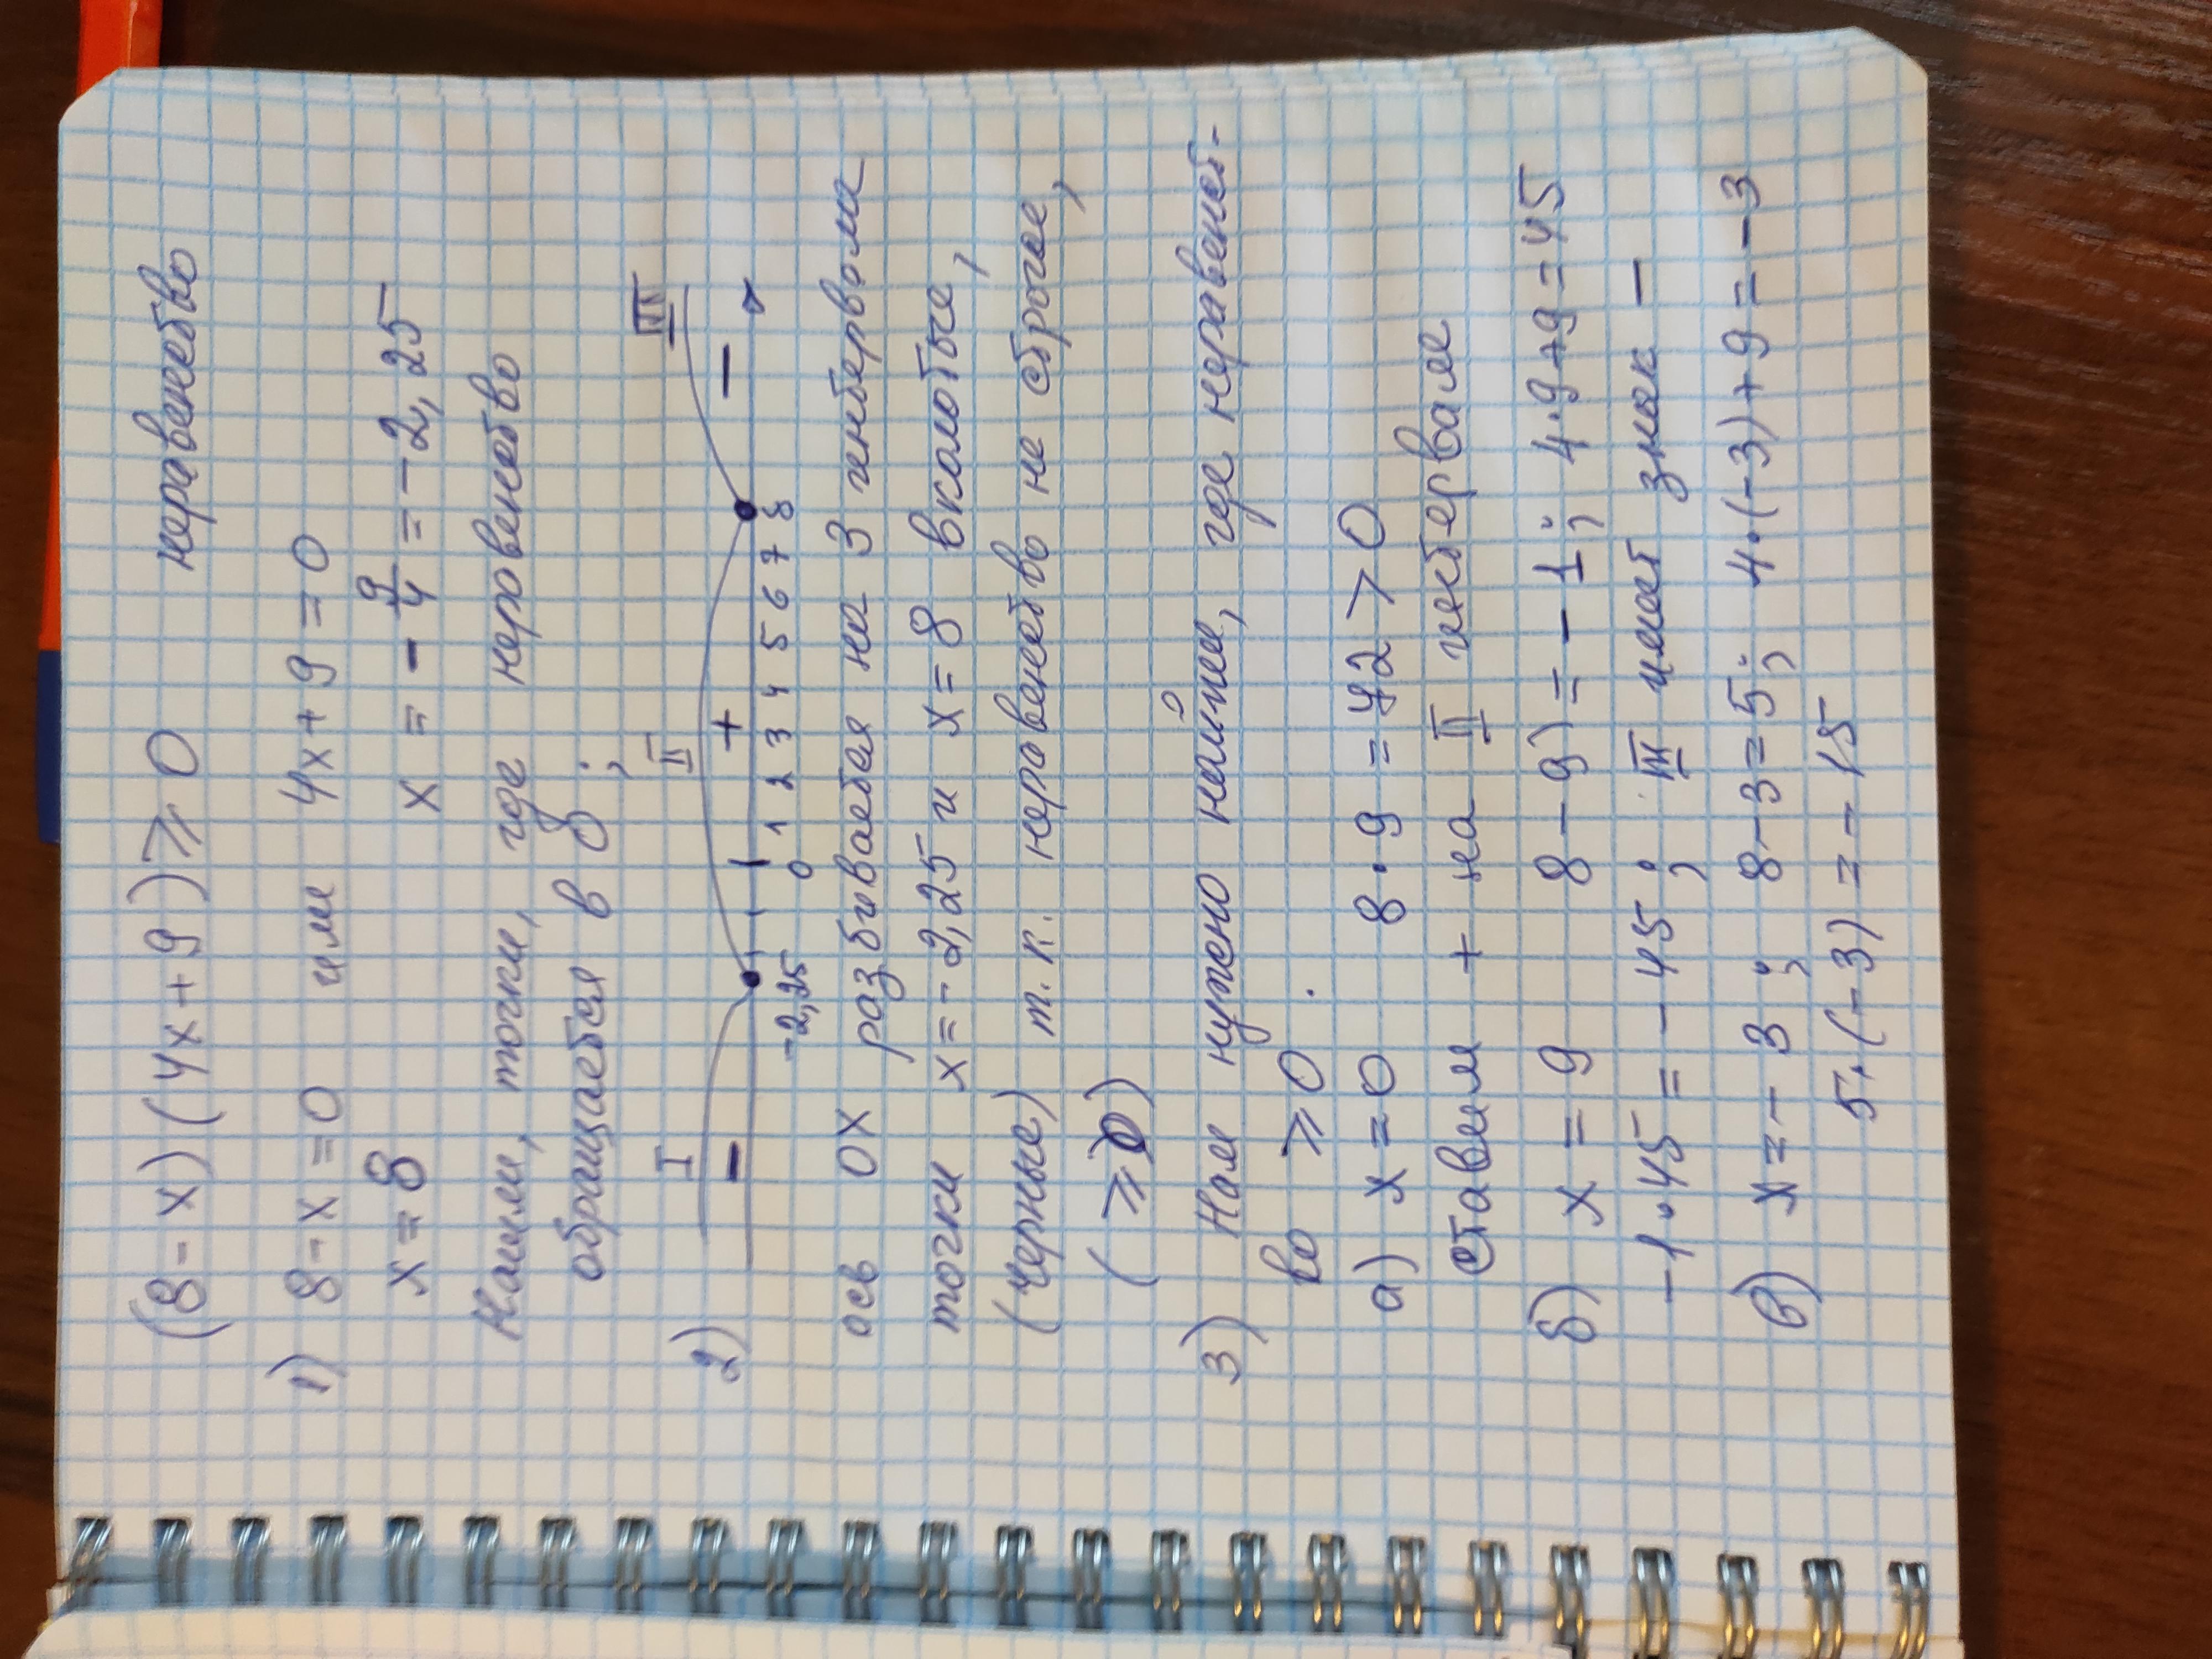 (8-x)(4x+9)⩾0 неравенство
1) 8-x=0 или 4x+9=0
x=8 x=-9/4=-2,25
Нашли, точки, где неровенство
обращается в 0;
I II III
2) - + -
-2,25 0 1 2 3 4 5 6 7 8
ось OX разбивается на 3 интервала
точки x=-2,25 и x=8 вколотые,
(черные) т.к. неравенство не строгое,
(⩾0)
3) Нам нужно найти, где неравенст-
во ⩾0.
а) x=0 8·9=72>0
ставим + на II интервале
б) x=9 8-9)=-1; 4·9+9=45
-1·45=-45; III инт знак -
в) x=-3; 8-3=5; 4·(-3)+9=-3
5·(-3)=-15